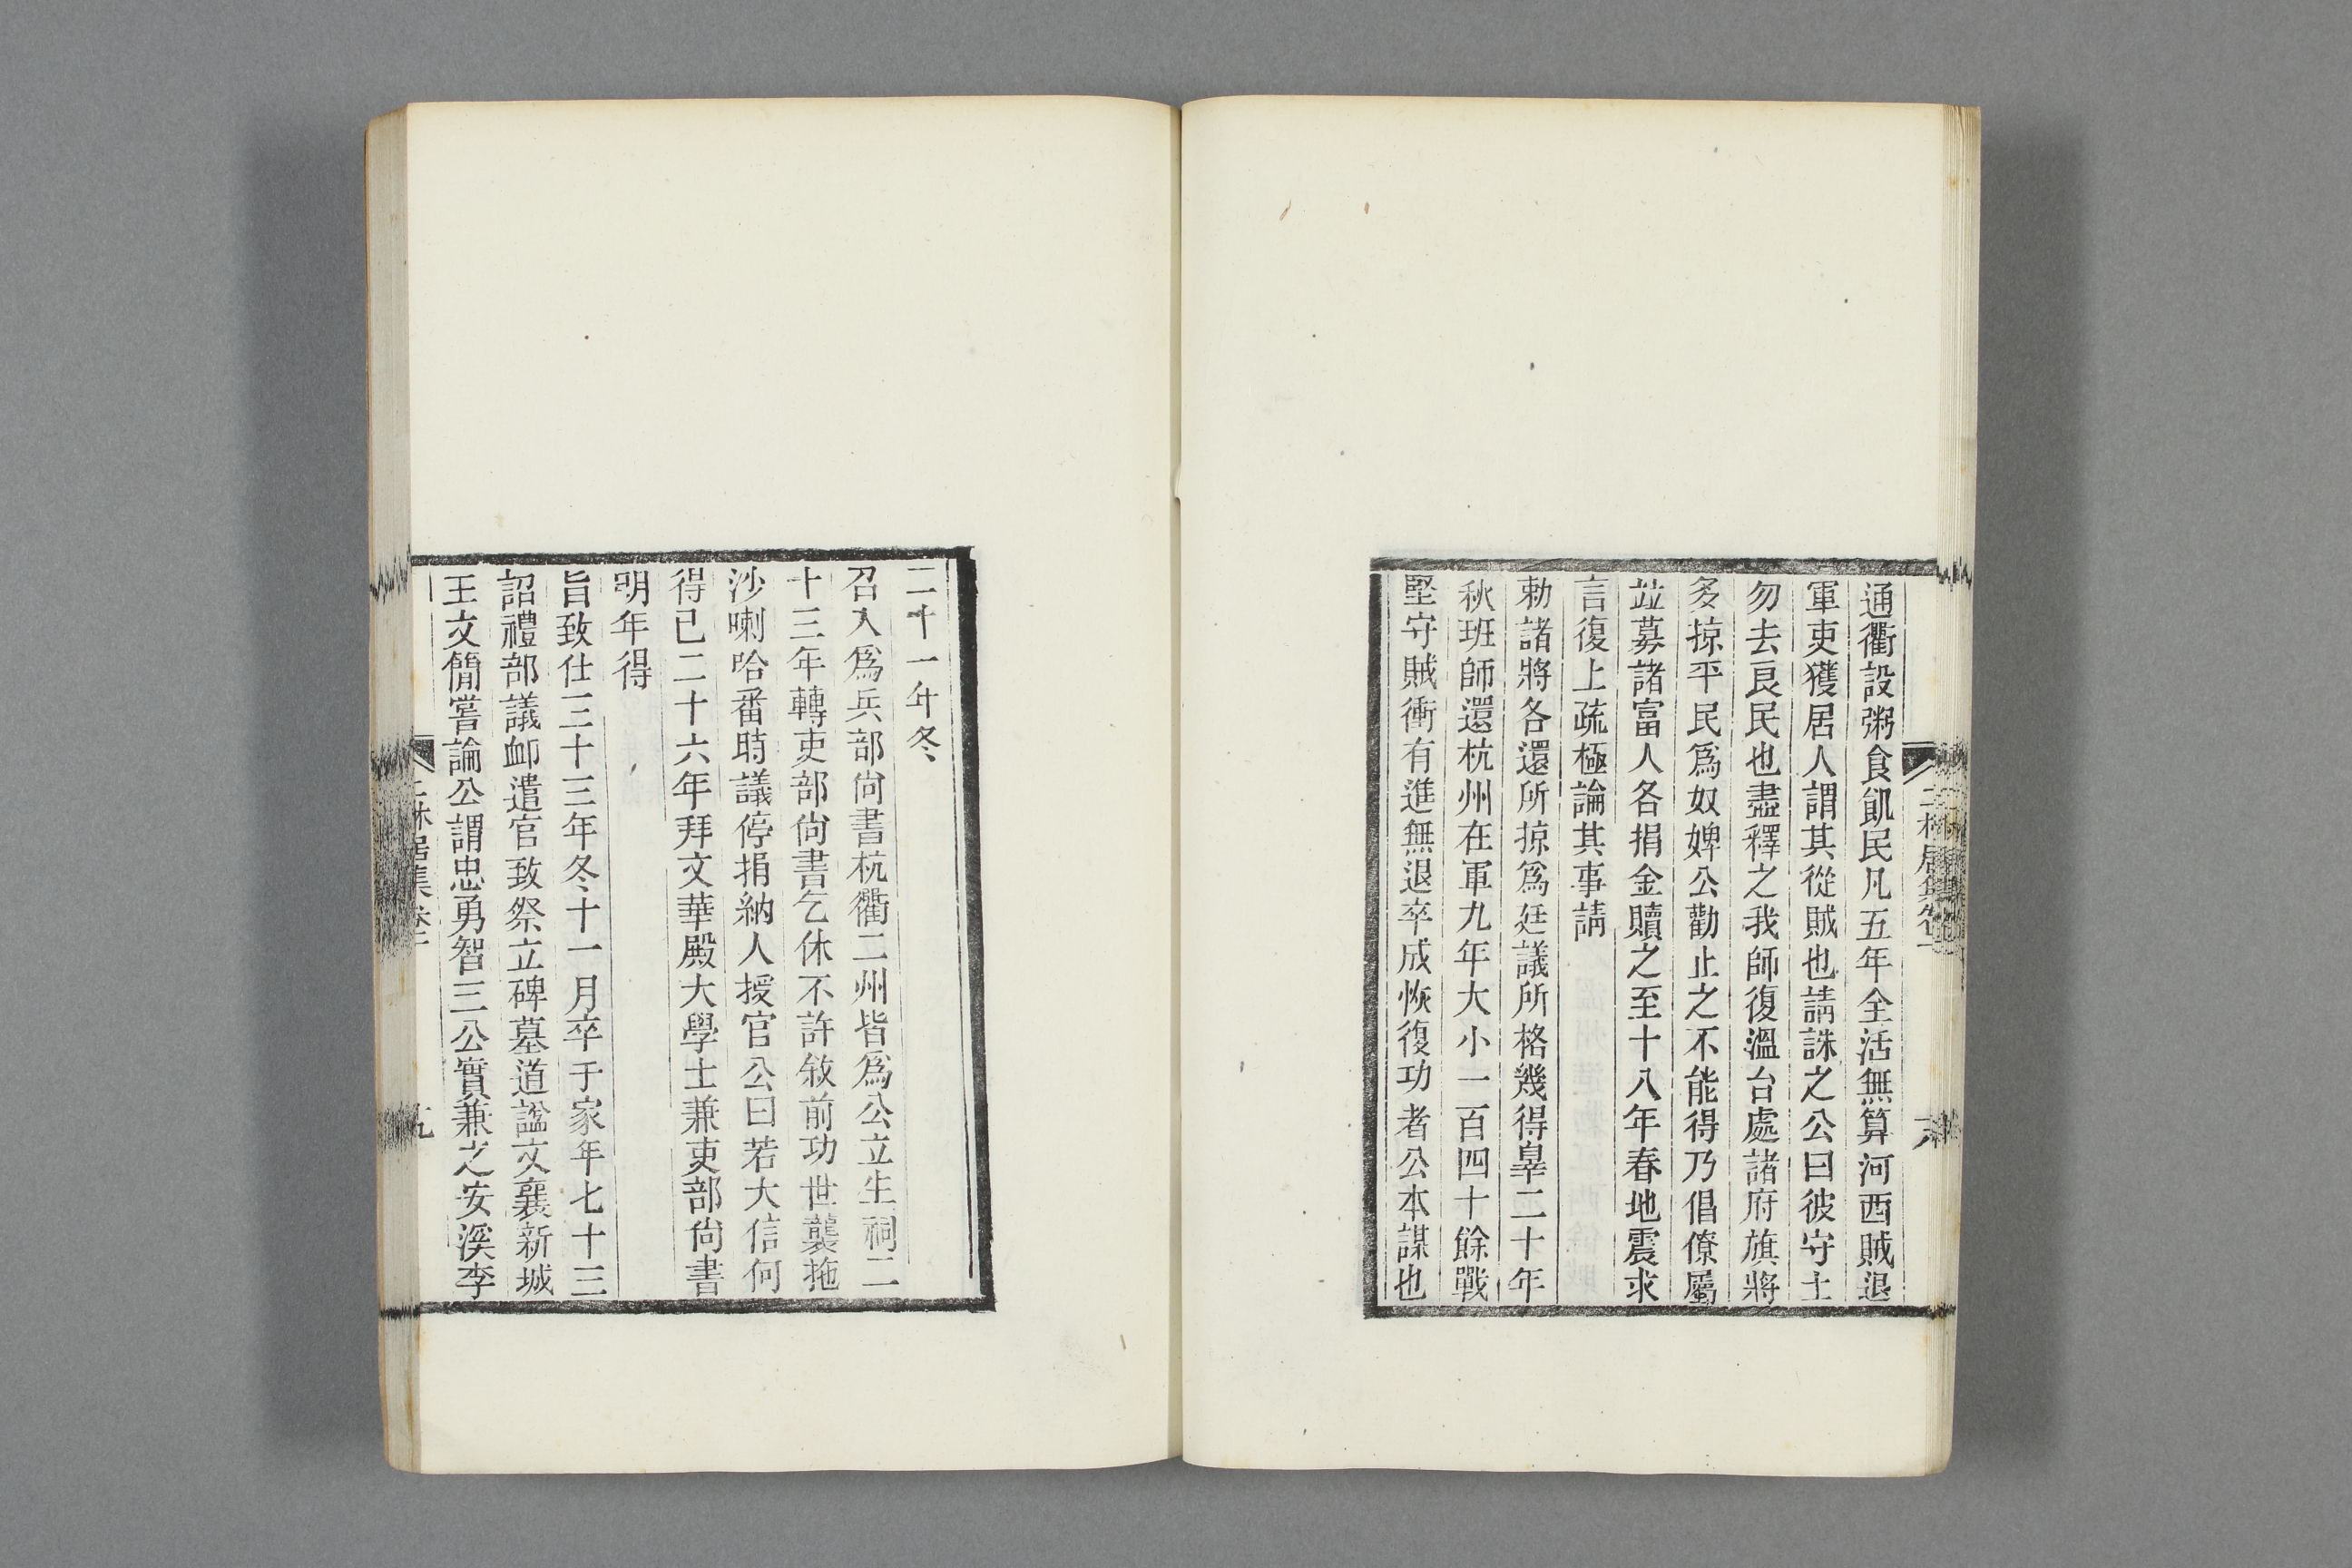 通衢設粥食飢民凡五年全活無算河西賊退
軍吏獲居人謂其從賊也請誅之公曰彼守土
勿去良民也盡釋之我師復溫台處諸府旗將
多掠平民爲奴婢公勸止之不能得乃倡僚屬
竝募諸富人各捐金贖之至十八年春地震求
言復上疏極論其事請
勅諸將各還所掠爲廷議所格幾得辠二十年
秋班師還杭州在軍九年大小一百四十餘戰
堅守賊衝有進無退卒成恢復功者公本謀也
二十一年冬
召入爲兵部尙書杭衢二州皆爲公立生祠二
十三年轉吏部尙書乞休不許敘前功世襲拖
沙喇哈番時議停捐納人授官公曰若大信何
得已二十六年拜文華殿大學士兼吏部尙書
明年得
旨致仕三十三年冬十一月卒于家年七十三
詔禮部議卹遣官致祭立碑墓道諡文襄新城
王文簡嘗論公謂忠勇智三公實兼之安溪李